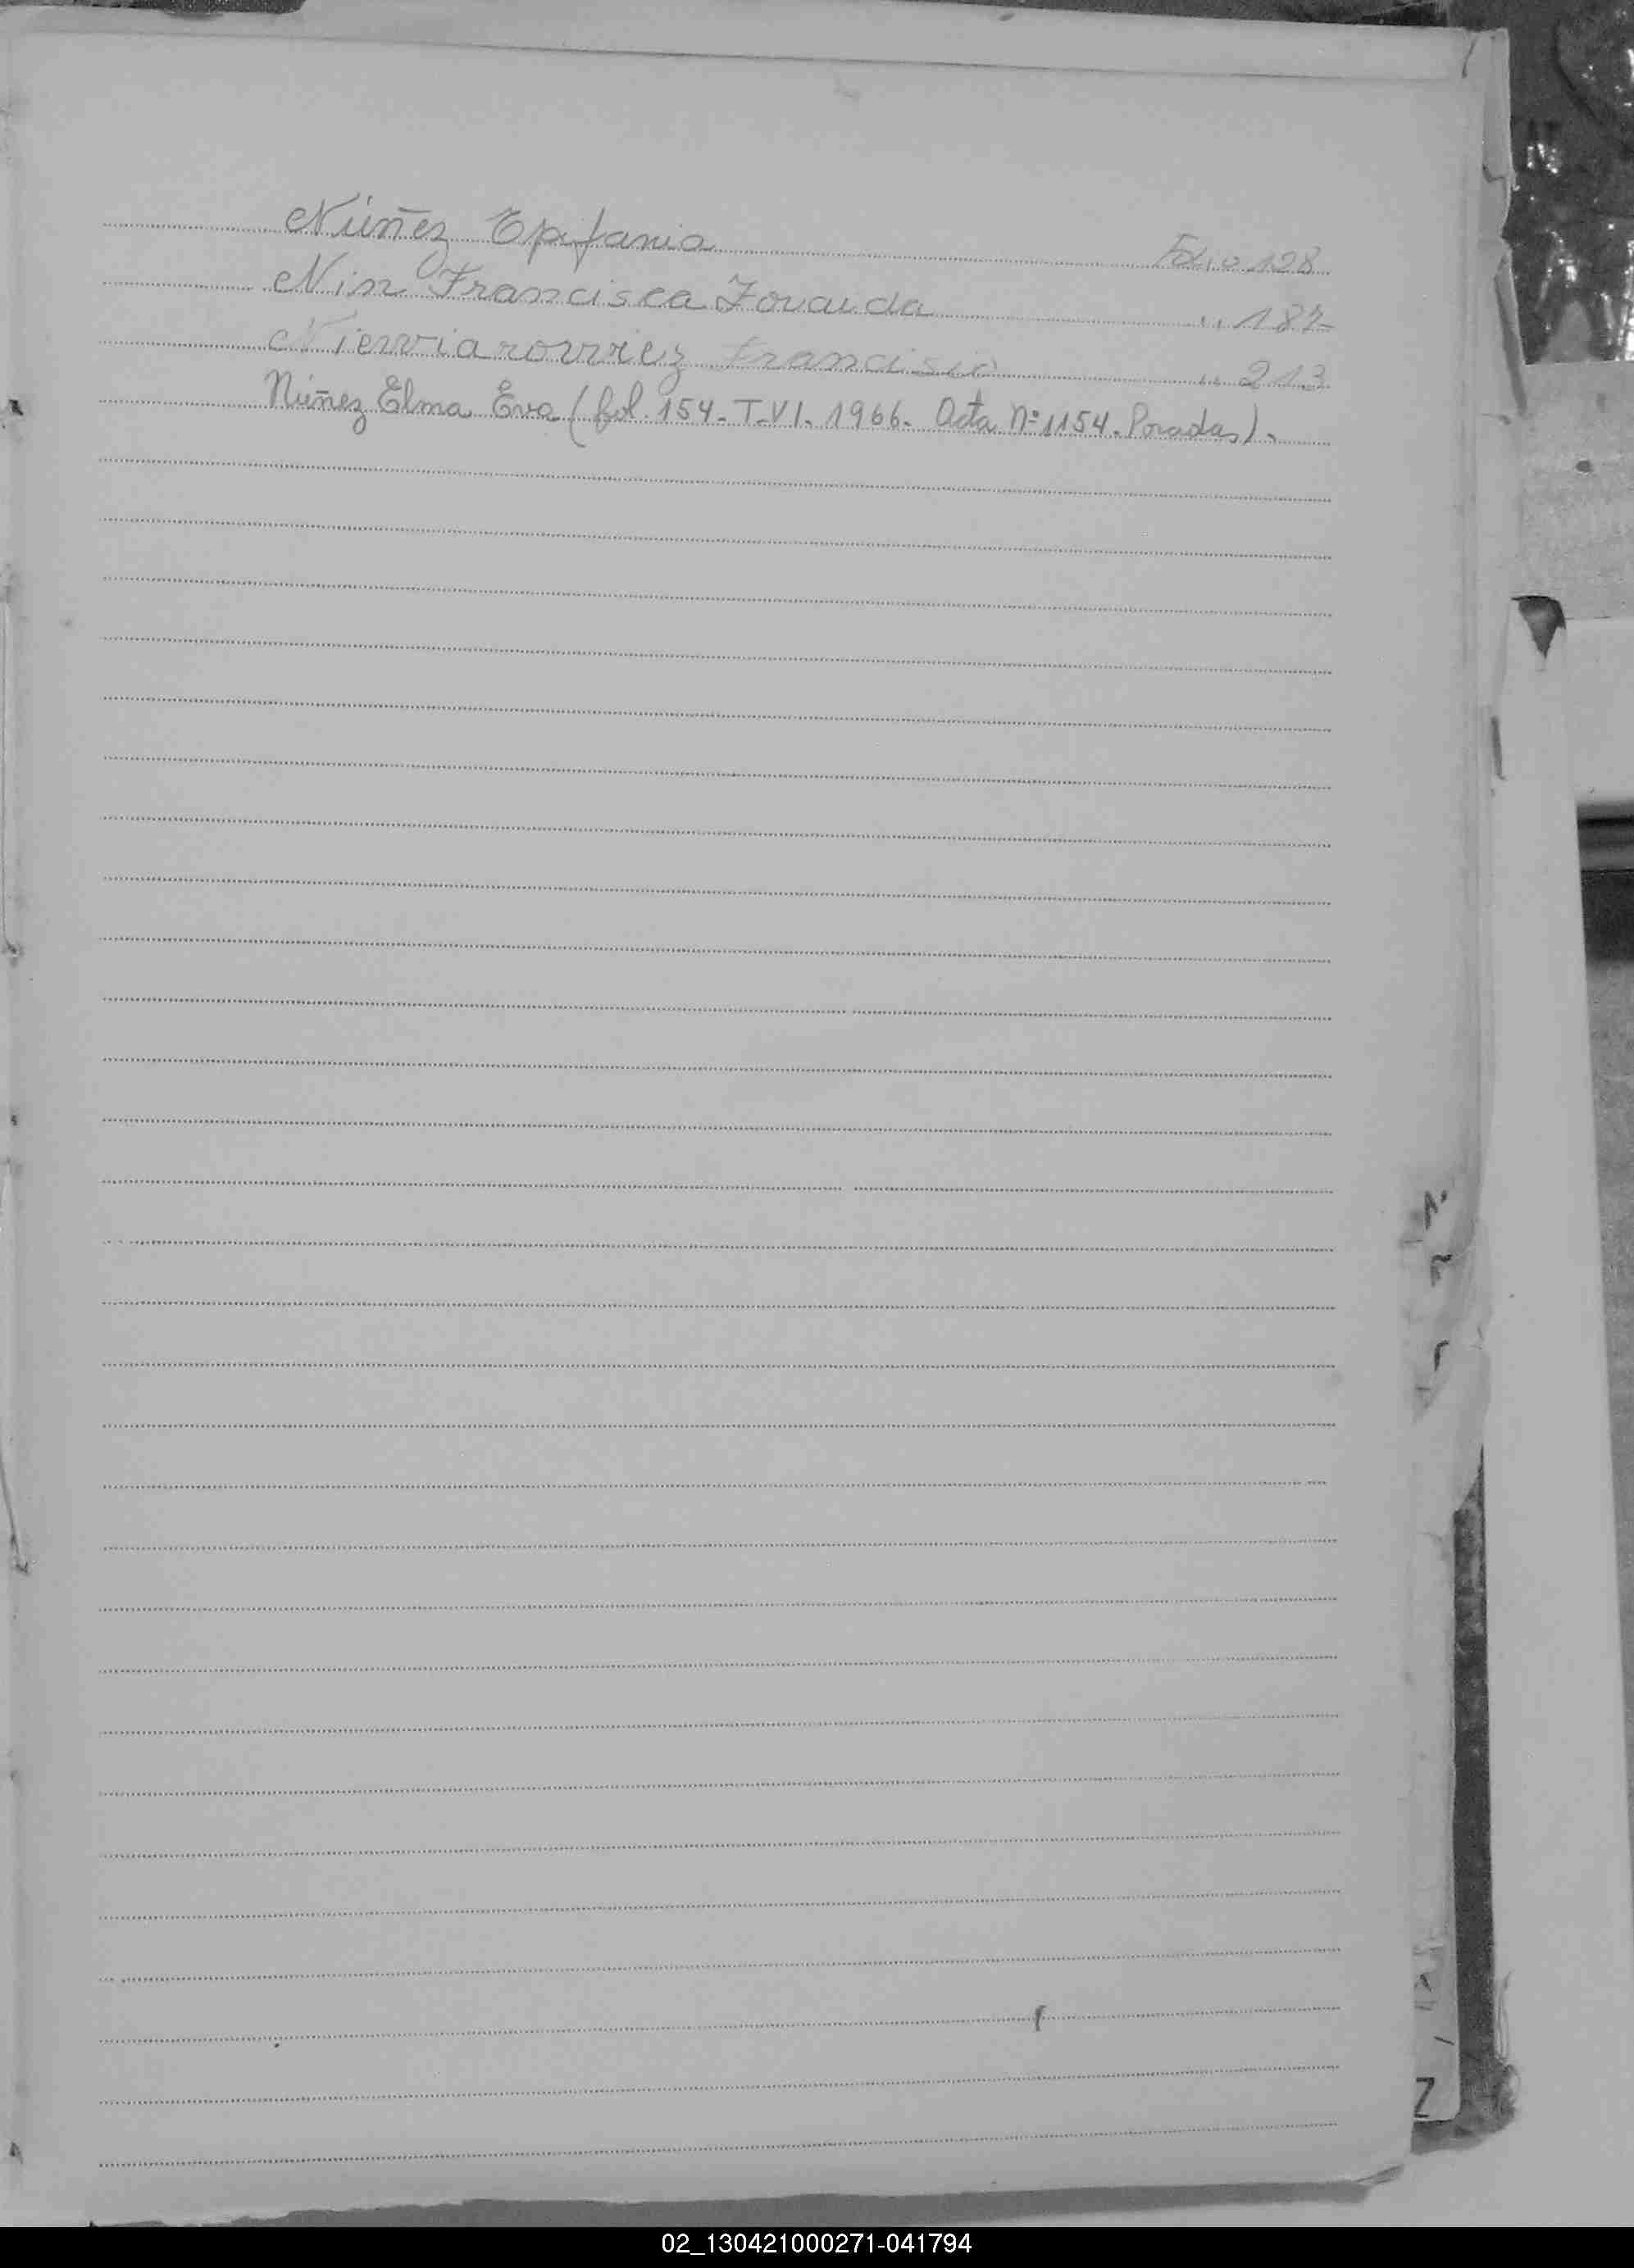 Núñez Epifania Folio 128
Nin Francisca Zoraida " 187
Francisco " 213
Núñez Elma Eva (fol. 154 - T-VI. 1966. Acta Nº 1154. Posadas).
Z
02_130421000271-041794